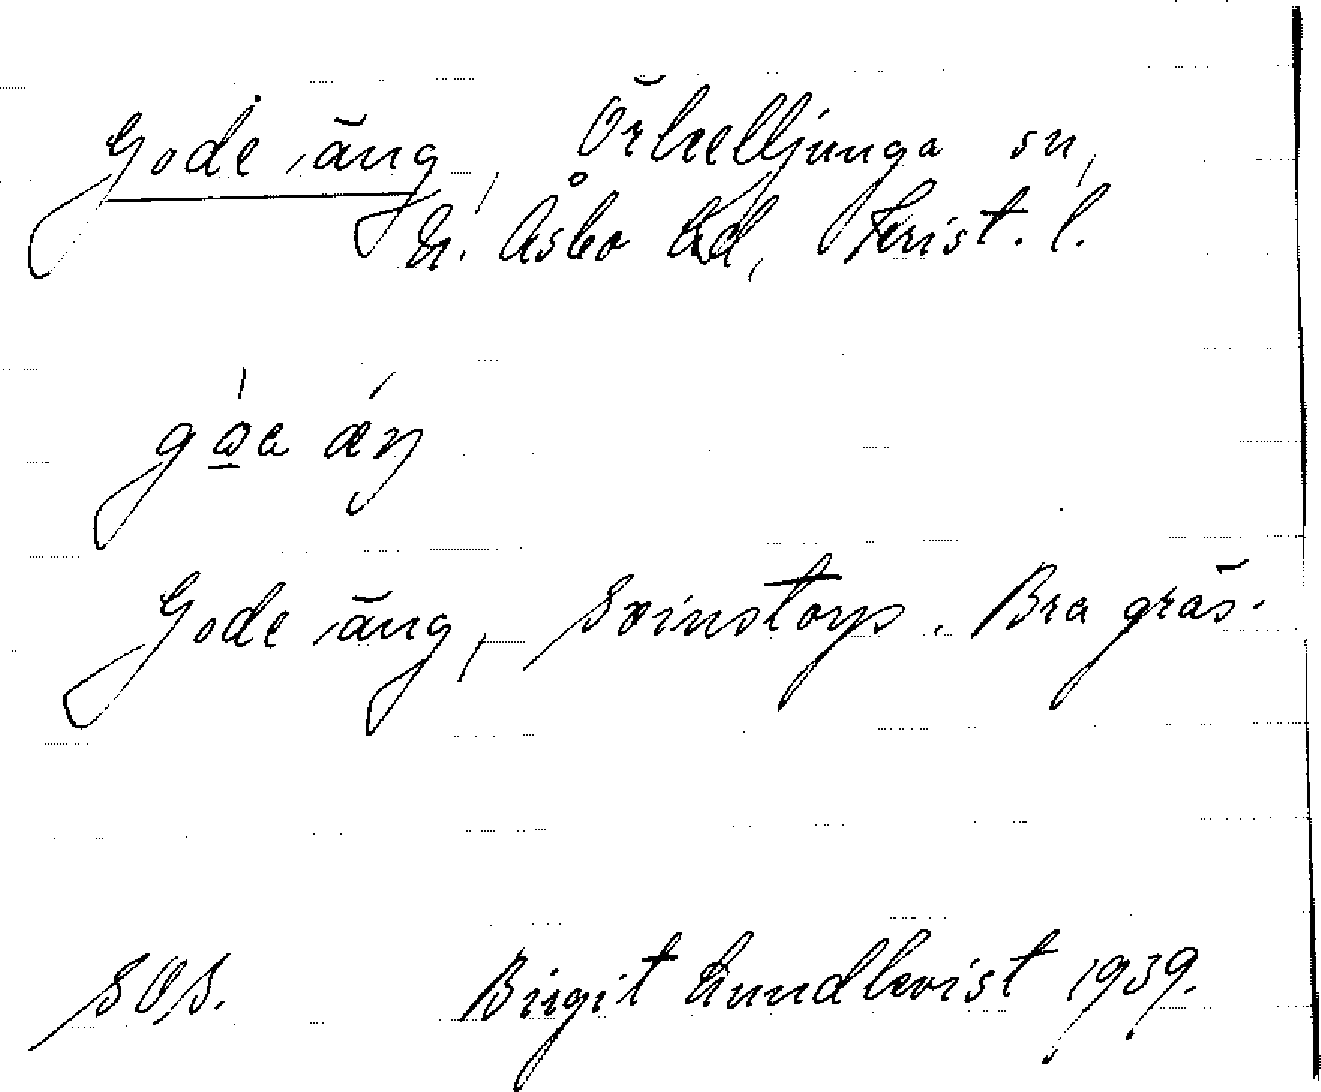 Gode äng, Örkelljunga sn,
N. Åsbo hd, Krist. l.
Gode äng, Svinstorp. Bra gräs.
Birgit Lundkvist 1939.